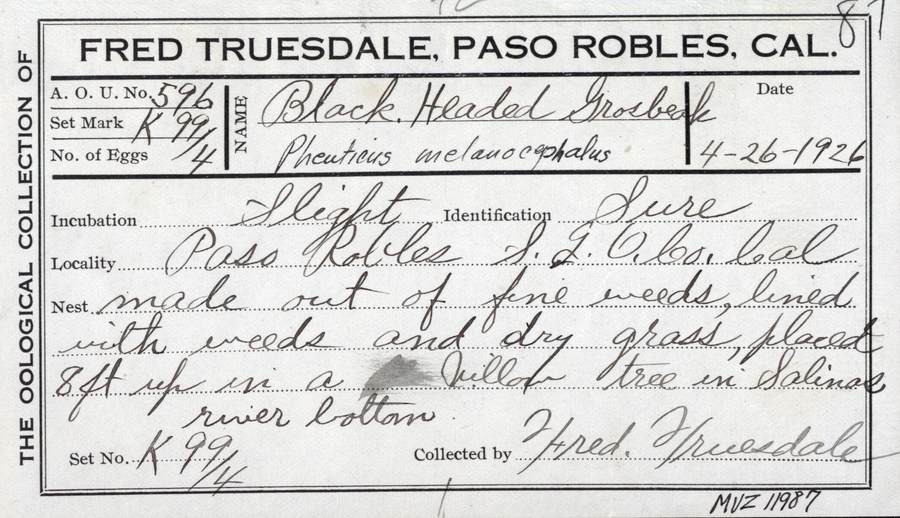 87
THE OOLOGICAL COLLECTION OF
FRED TRUESDALE, PASO ROBLES, CAL.
A. O. U. No. 596
Set Mark K 99/4
No. of Eggs
NAME
Black. Headed Grosbeak
Pheuticus melanocephalus
Date
4-26-1926
Incubation Slight Identification Sure
Locality Paso Robles S. L. O. Co. Cal
Nest made out of fine weeds, lined
with weeds and dry grass, placed
8ft up in a Willow tree in Salinas
river bottom.
Set No. K 99/4 Collected by Fred. Truesdale
MVZ 11987